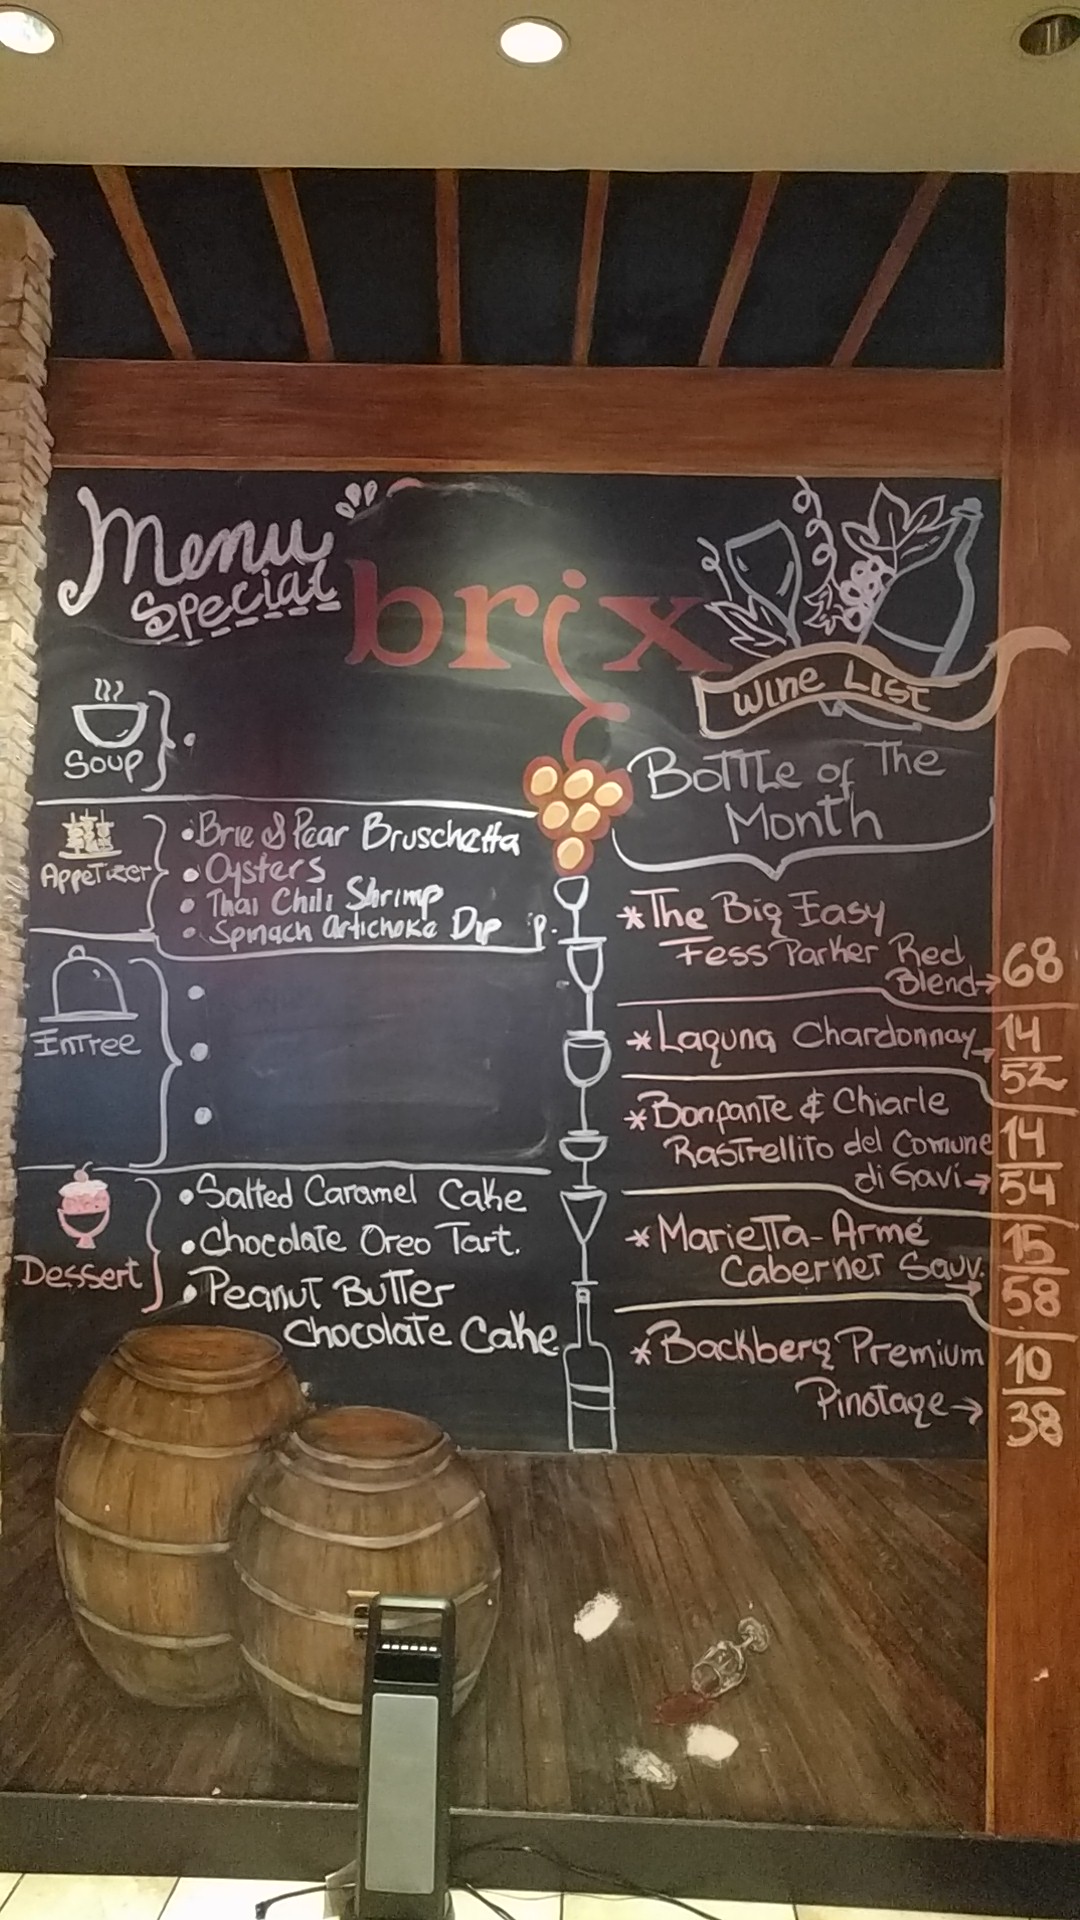 Menu
Special
brix
Wine List
Soup
Appetizer
Brie & Pear Bruschetta
Oysters
Thai Chili Shrimp
Spinach Artichoke Dip
Entree
Dessert
Salted Caramel Cake
Chocolate Oreo Tart.
Peanut Butter
Chocolate Cake.
Bottle of The
Month
*The Big Easy
Fess Parker Red
Blend→ 68
*Laguna Chardonnay→ 14
52
*Bonfante & Chiarle
Rastrellito del Comune 14
di Gavi→ 54
*Marietta-Armé 15
Cabernet Sauv.→ 58
*Backberg Premium 10
Pinotage→ 38